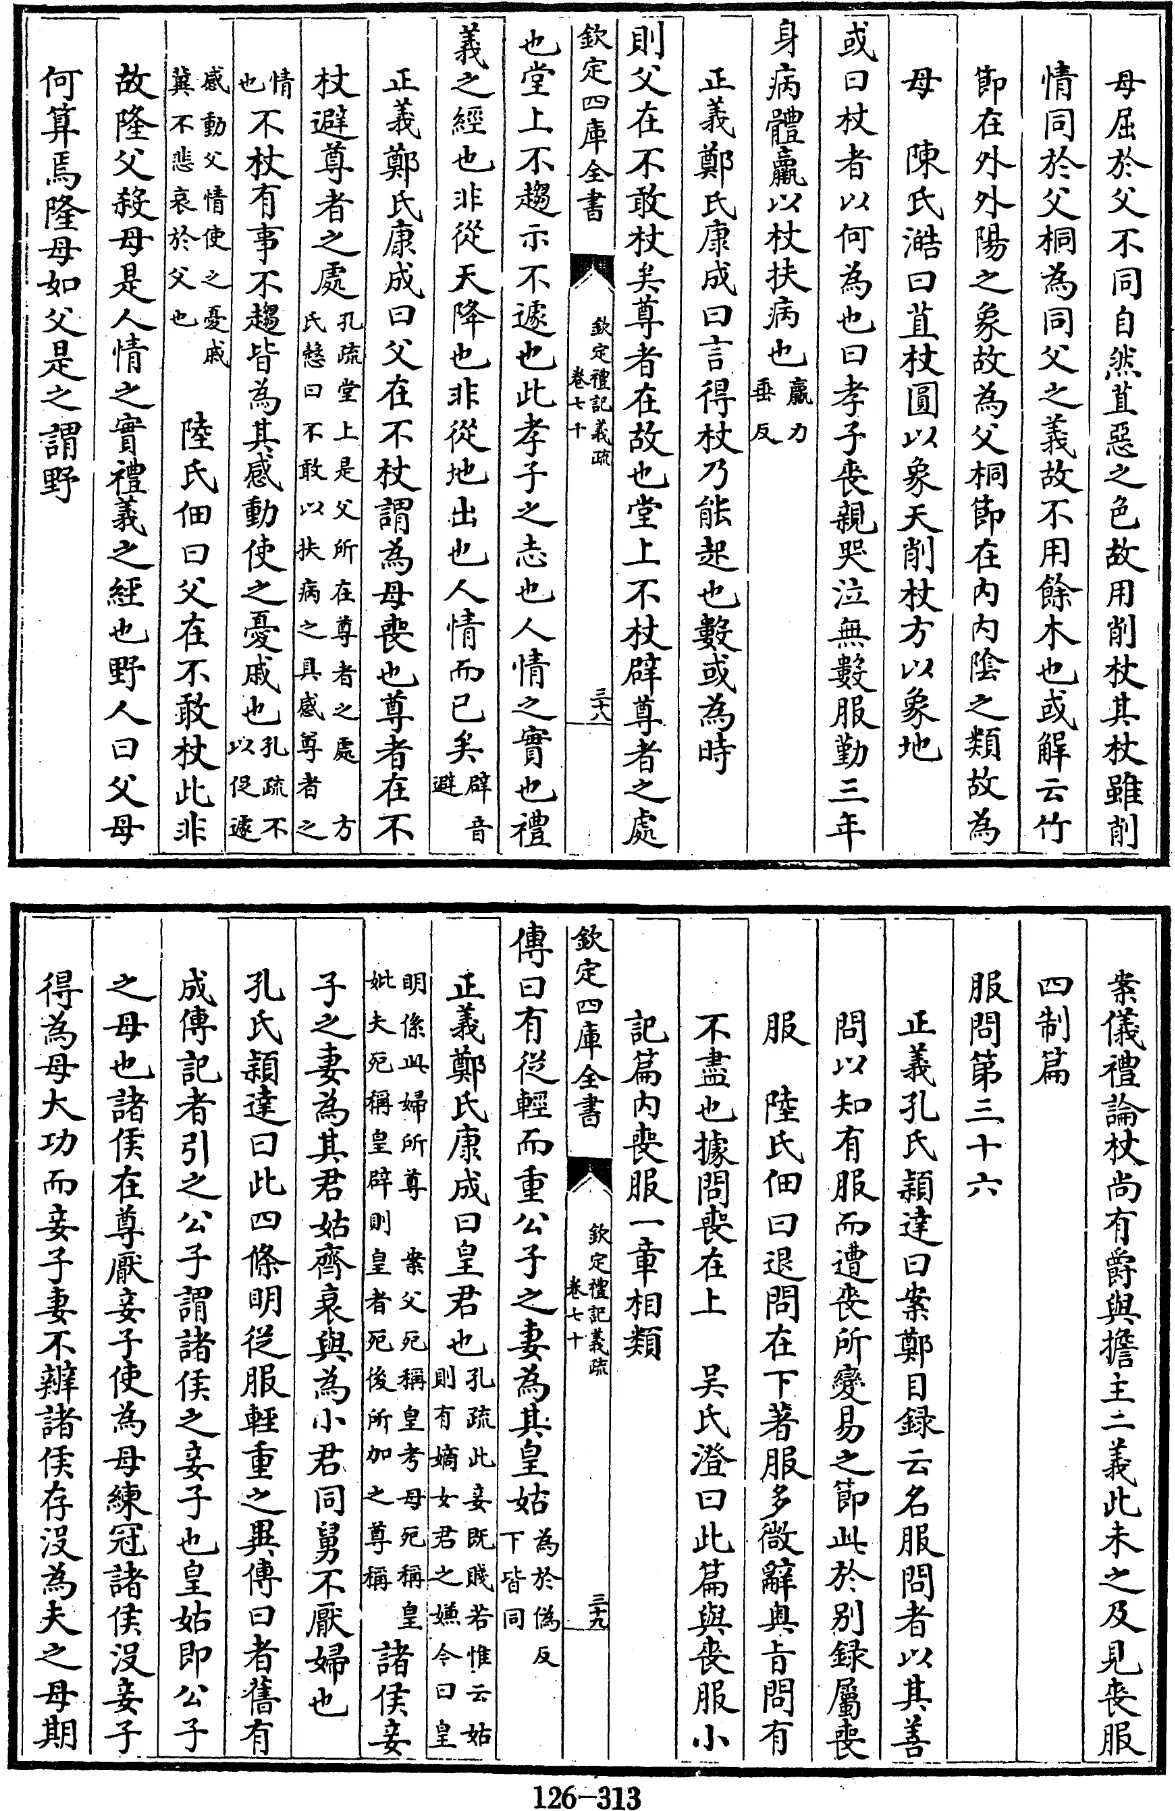 母屈於父不同自然苴惡之色故用削杖其杖雖削
情同於父桐為同父之義故不用餘木也或解云竹
節在外外陽之象故為父桐節在內內陰之類故為
母　陳氏澔曰苴杖圓以象天削杖方以象地
或曰杖者以何為也曰孝子喪親哭泣無數服勤三年
身病體羸以杖扶病也羸力垂反
正義鄭氏康成曰言得杖乃能起也數或為時
則父在不敢杖矣尊者在故也堂上不杖辟尊者之處
欽定四庫全書
欽定禮記義疏
卷七十
三十八
也堂上不趨示不遽也此孝子之志也人情之實也禮
義之經也非從天降也非從地出也人情而已矣辟音避
正義鄭氏康成曰父在不杖謂為母喪也尊者在不
杖避尊者之處孔疏堂上是父所在尊者之處　方氏慤曰不敢以扶病之具感尊者之
情也不杖有事不趨皆為其感動使之憂戚也孔疏不以促遽
感動父情使之憂戚冀不悲哀於父也　陸氏佃曰父在不敢杖此非
故隆父殺母是人情之實禮義之經也野人曰父母
何算焉隆母如父是之謂野
案儀禮論杖尚有爵與擔主二義此未之及見喪服
四制篇
服問第三十六
正義孔氏穎達曰案鄭目録云名服問者以其善
問以知有服而遭喪所變易之節此於別録屬喪
服　陸氏佃曰退問在下著服多微辭奥旨問有
不盡也據問喪在上　吴氏澄曰此篇與喪服小
記篇内喪服一章相類
欽定四庫全書
欽定禮記義疏
卷七十
三十九
傳曰有從輕而重公子之妻為其皇姑為於偽反下皆同
正義鄭氏康成曰皇君也孔疏此妾既賤若惟云姑則有嫡女君之嫌今曰皇
明係此婦所尊　案父死稱皇考母死稱皇妣夫死稱皇辟則皇者死後所加之尊稱　諸侯妾
子之妻為其君姑齊衰與為小君同舅不厭婦也
孔氏穎達曰此四條明從服輕重之異傳曰者舊有
成傳記者引之公子謂諸侯之妾子也皇姑即公子
之母也諸侯在尊厭妾子使為母練冠諸侯沒妾子
得為母大功而妾子妻不辨諸侯存沒為夫之母期
126-313